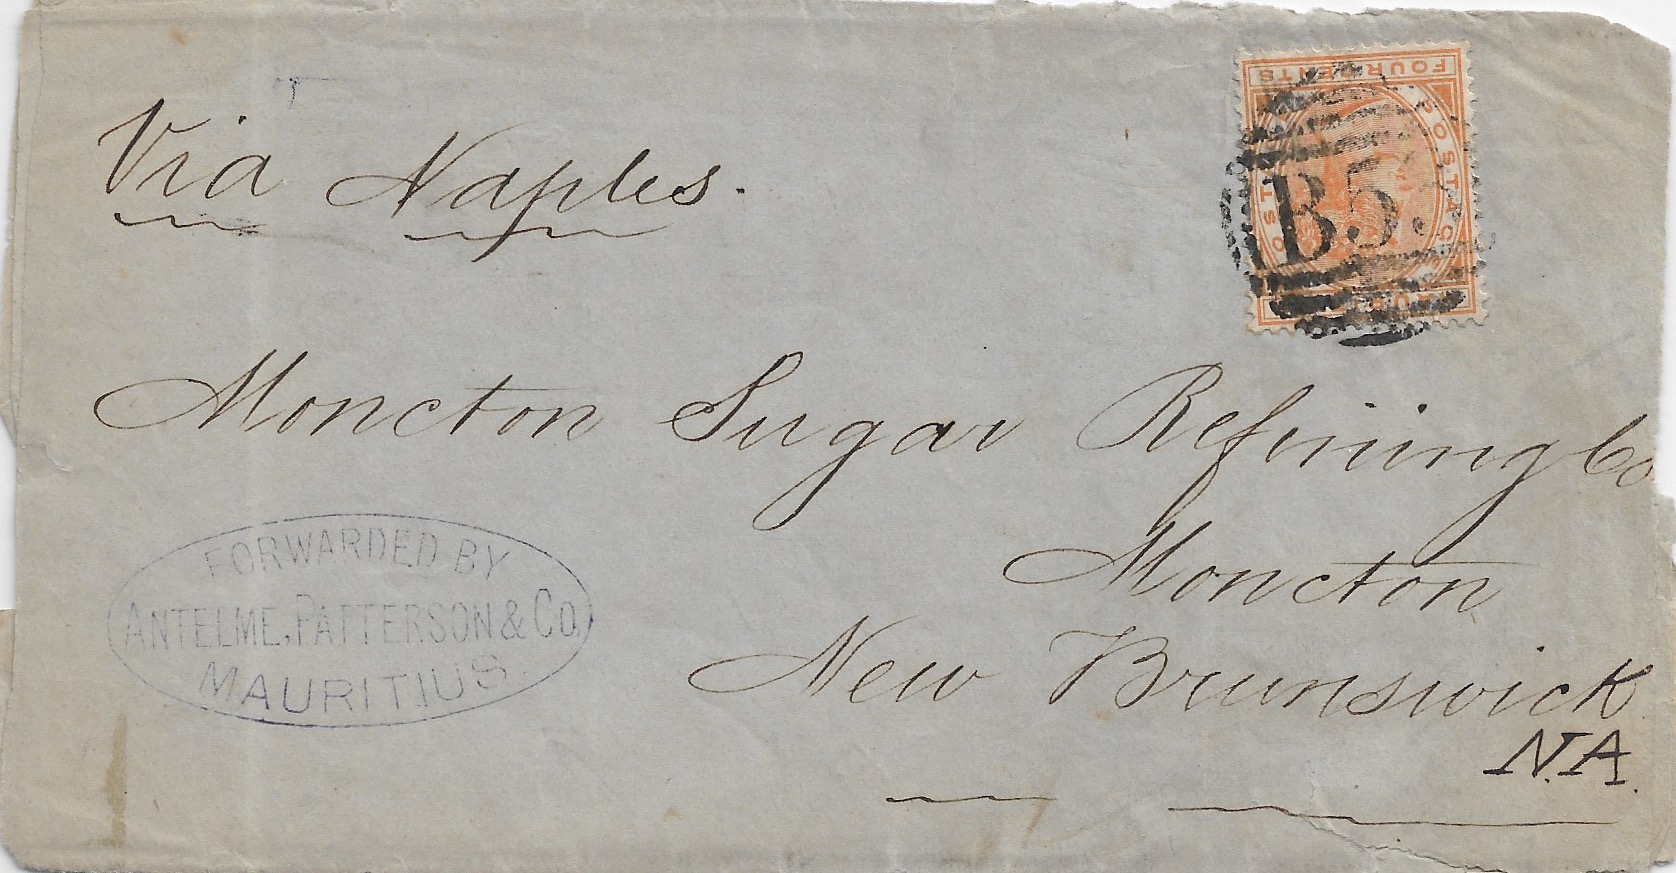 Via Naples.
FOUR CENTS
POSTAGE
B53
Moncton Sugar Refining Co
Moncton
New Brunswick
N.A.
FORWARDED BY
ANTELME, PATTERSON & CO.
MAURITIUS.